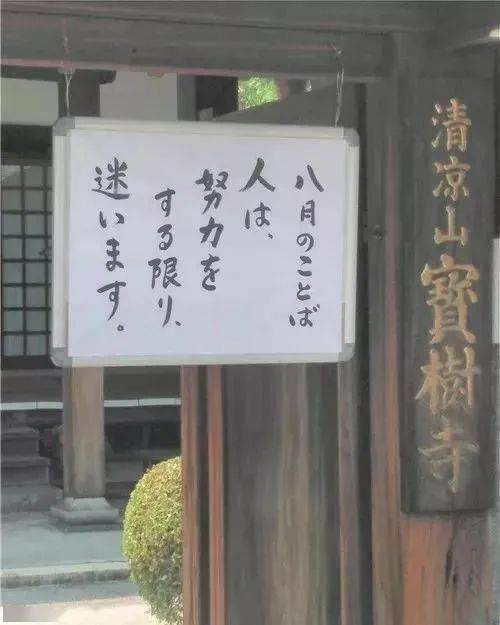 八月のことば
人は、
努力を
する限り、
迷います。
清凉山 寶樹寺